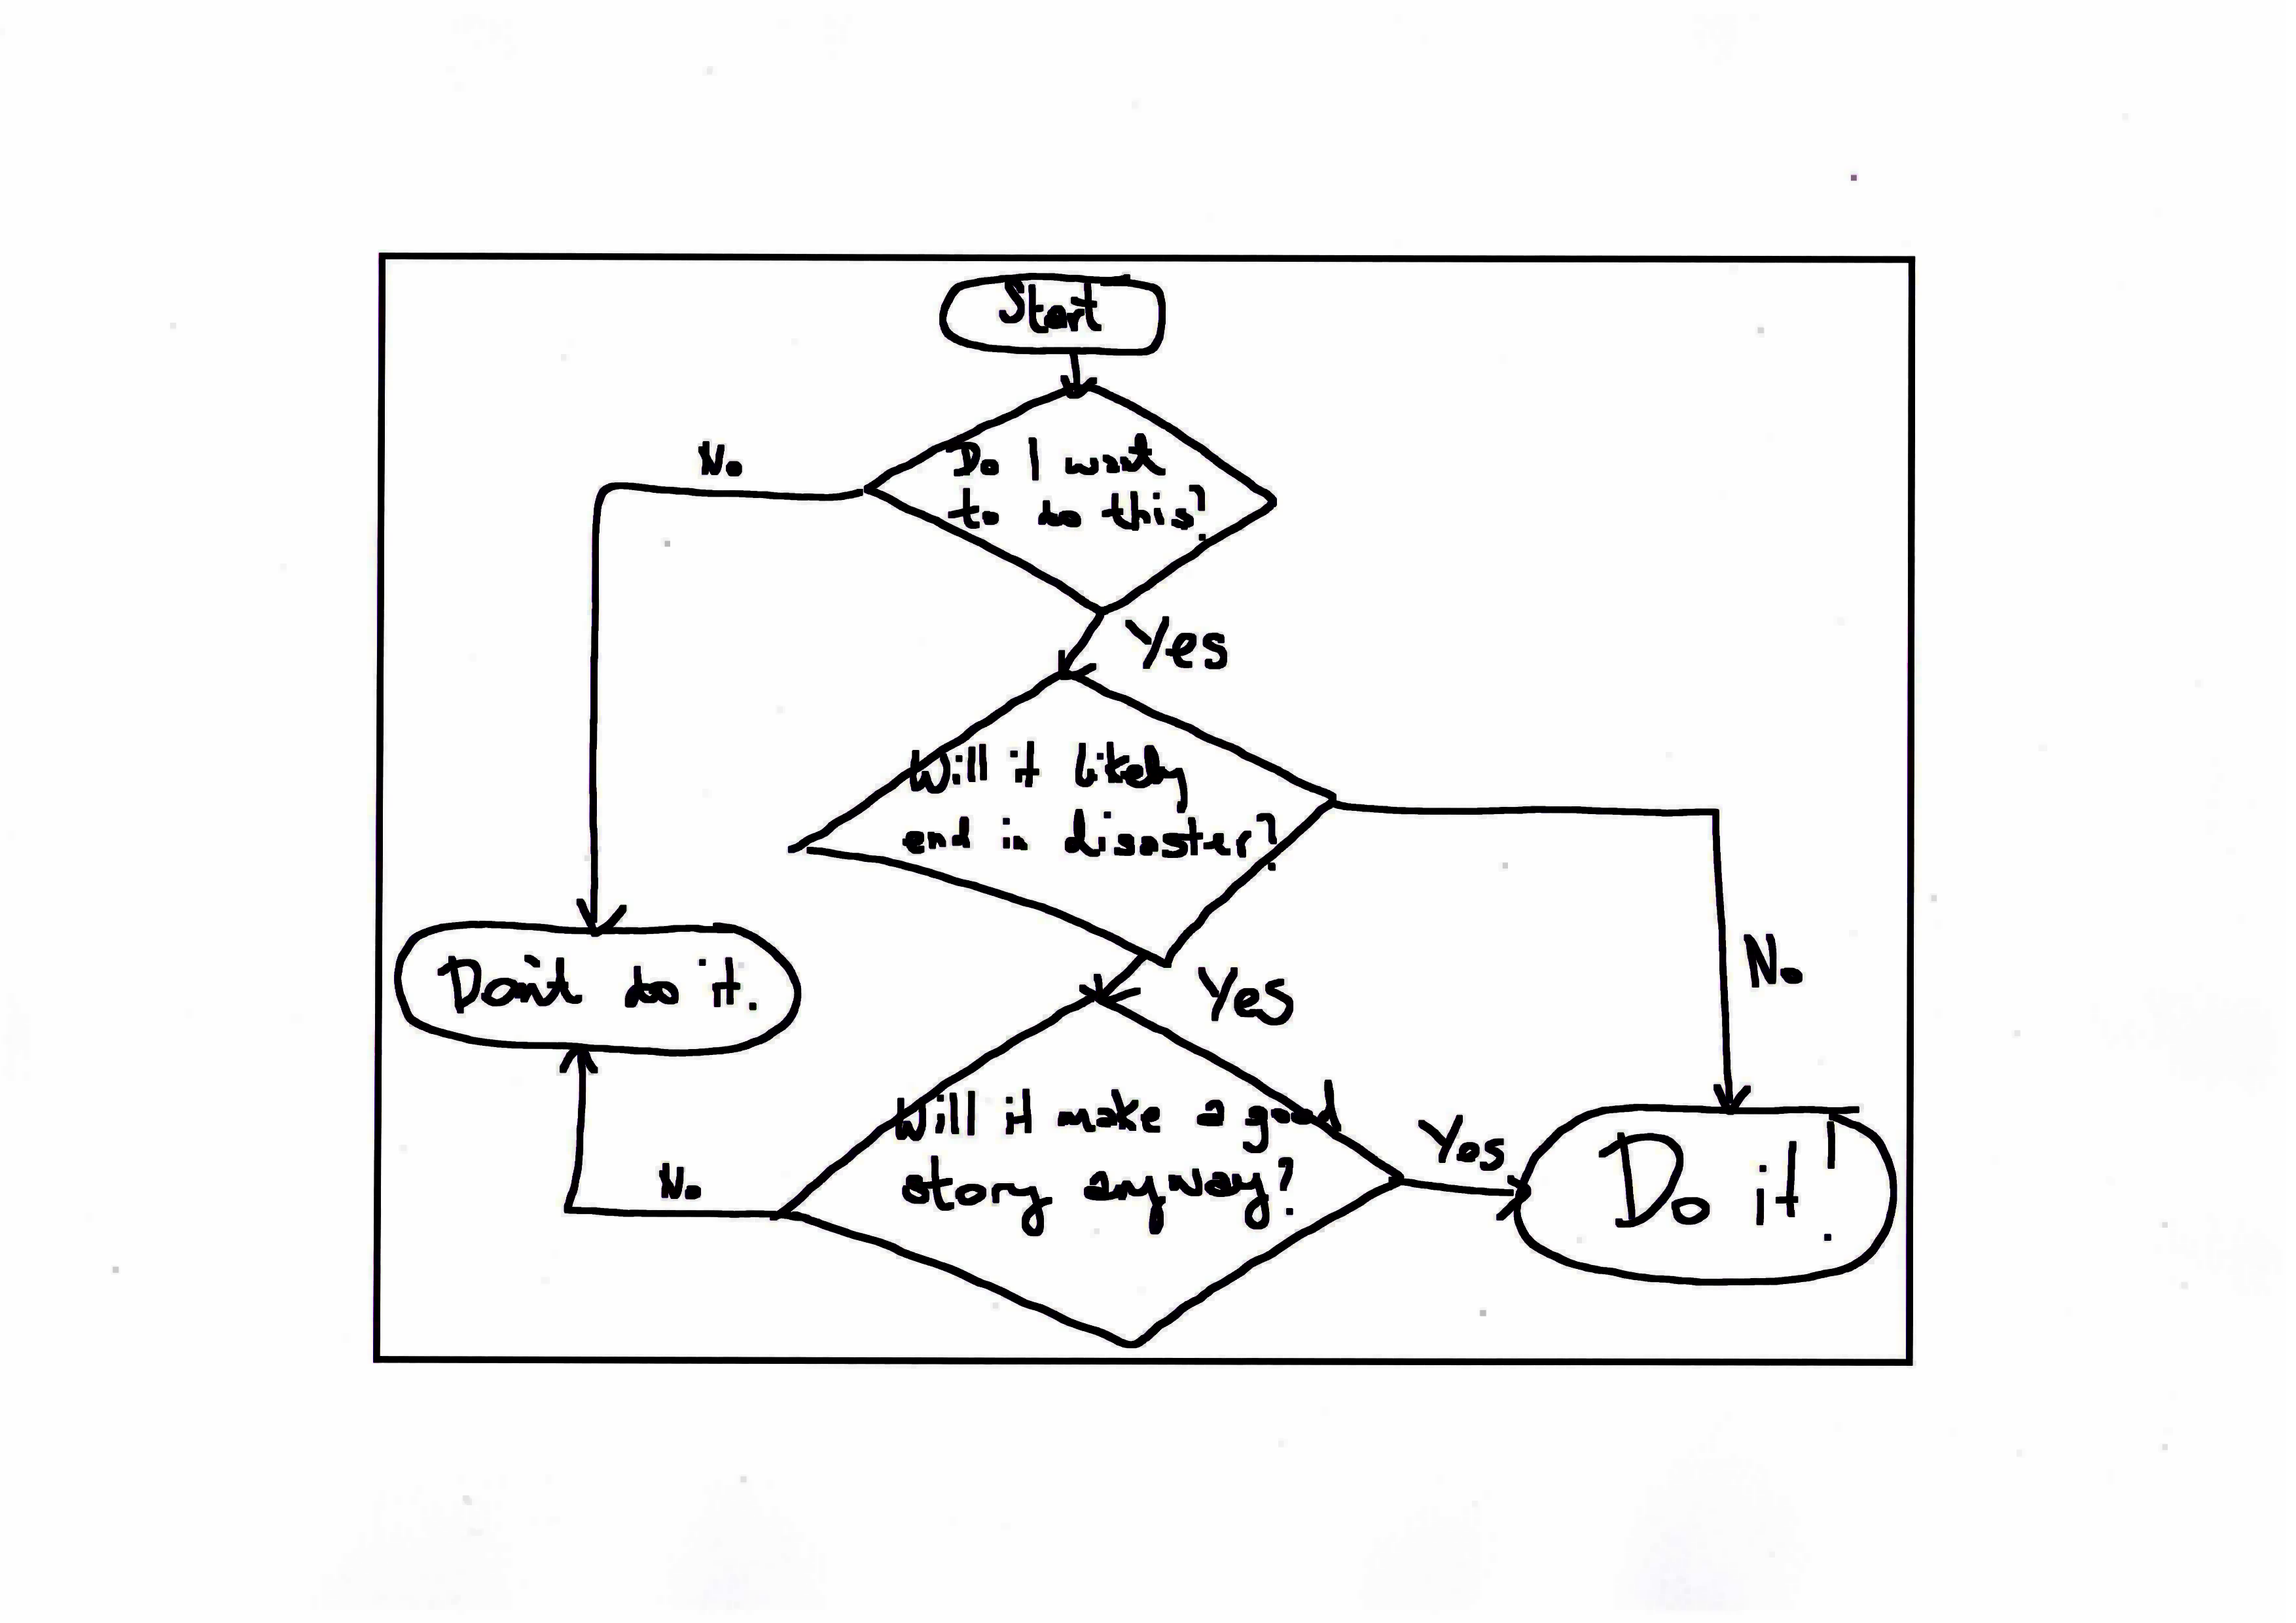 Start
No
Do I want
to do this?
Yes
Will it likely
end in disaster?
No
Don't do it.
Yes
Will it make a good
story anyway?
Yes
No
Do it!